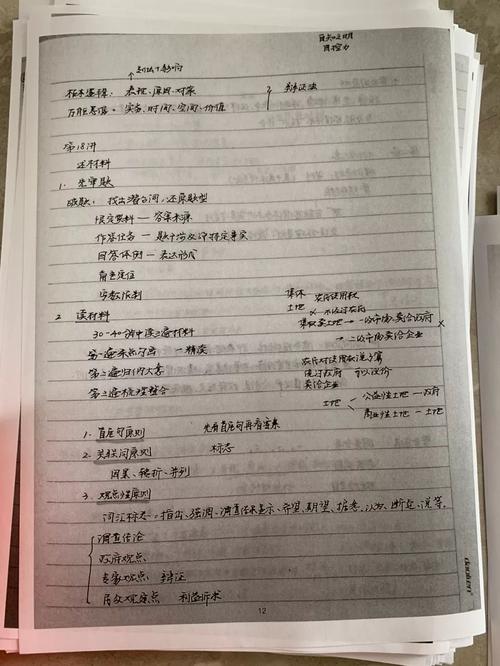 自知之明
自控力
树木案例:表现、原因、对策
万能思路:实务、时间、空间、价值
辩证法
第18讲
读材料
1. 先审题
破题:找出潜台词,还原题型
限定资料——答案来源
作答任务——题干涉及的特定事实
回答体例——表达形式
角色定位
字数限制
2. 读材料
30-40分钟读三遍材料
第一遍 精读
第二遍归纳大意
第三遍梳理整合
集体
土地
农民使用权
集体卖土地→一级市场卖给政府 ×
→二级市场卖给企业
农民对使用权说了算
绕过政府 可以议价
卖给企业
土地 公益性土地—政府
商业性土地—土地
1. 首尾句原则 先看首尾句再看答案
2. 关联词原则 标志
因果、转折、并列
3. 观点性原则
词汇标志:指出、强调、调查结果显示、希望、期望、据悉、认为、断定、说等。
调查结论
政府观点
专家观点 辩证
民众观点 利益诉求
12